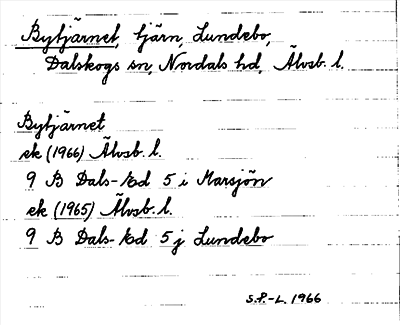 Bytjärnet, tjärn, Lundebo,
Dalskogs sn, Nordals hd, Älvsb. l.
Bytjärnet
ek (1966) Älvsb. l.
9 B Dals-Ed 5 i Marsjön
ek (1965) Älvsb. l.
9 B Dals-Ed 5 j Lundebo
S.P.-L. 1966